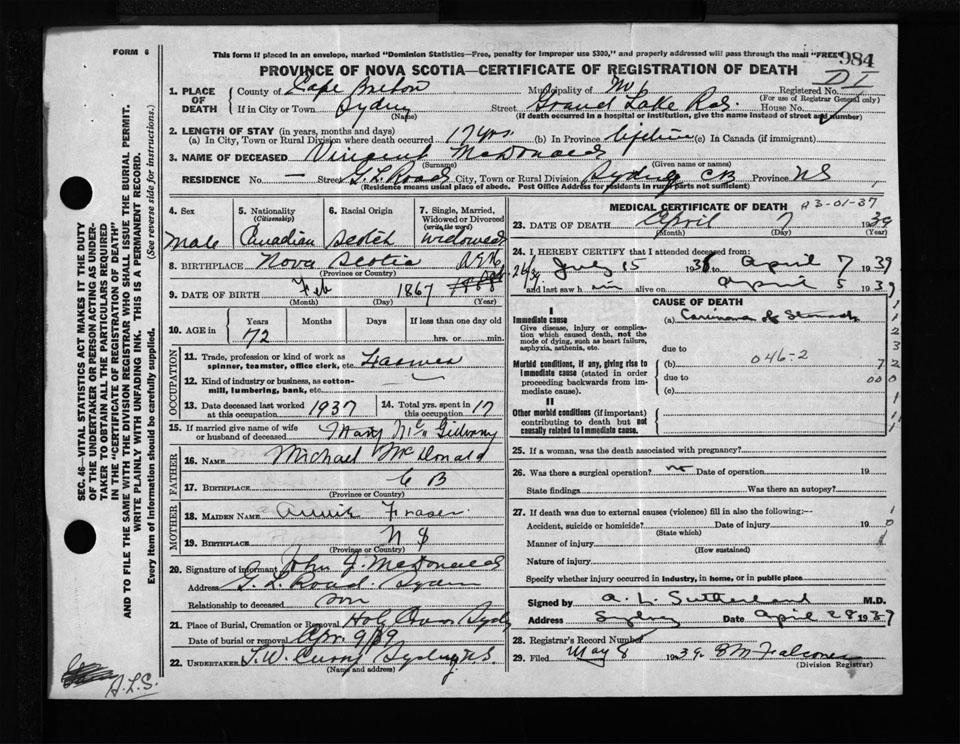 FORM 6
This form if placed in an envelope, marked "Dominion Statistics—Free, penalty for improper use $300," and properly addressed will pass through the mail "FREE"
984
PROVINCE OF NOVA SCOTIA—CERTIFICATE OF REGISTRATION OF DEATH
D I
1. PLACE OF DEATH
County of Cape Breton
Municipality of
Registered No.
(For use of Registrar General only)
If in City or Town Sydney
(Name)
Street Grand Lake Rd. House No.
(If death occurred in a hospital or institution, give the name instead of street and number)
2. LENGTH OF STAY (in years, months and days)
(a) In City, Town or Rural Division where death occurred 17 yrs. (b) In Province lifetime (c) In Canada (if immigrant)
3. NAME OF DECEASED Vincent McDonald
(Surname) (Given name or names)
RESIDENCE No. — Street G. L. Road City, Town or Rural Division Sydney CB Province NS
(Residence means usual place of abode. Post Office Address for residents in rural parts not sufficient)
4. Sex
Male
5. Nationality
(Citizenship)
Canadian
6. Racial Origin
Scotch
7. Single, Married, Widowed or Divorced
(write the word)
Widowed
8. BIRTHPLACE Nova Scotia
(Province or Country)
9. DATE OF BIRTH Feb 1867
(Month) (Day) (Year)
10. AGE in
Years Months Days If less than one day old
72 hrs. or min.
OCCUPATION
11. Trade, profession or kind of work as spinner, teamster, office clerk, etc. Farmer
12. Kind of industry or business, as cotton-mill, lumbering, bank, etc.
13. Date deceased last worked at this occupation 1937
14. Total yrs. spent in this occupation 17
15. If married give name of wife or husband of deceased Mary
FATHER
16. NAME Michael McDonald
17. BIRTHPLACE C B
(Province or Country)
MOTHER
18. MAIDEN NAME Annie Fraser
19. BIRTHPLACE N S
(Province or Country)
20. Signature of informant John J. McDonald
Address G. L. Road. Sydney
Relationship to deceased son
21. Place of Burial, Cremation or Removal Holy Cross Sydney
Date of burial or removal Apr. 9/39
22. UNDERTAKER T. W. Curry Sydney N.S.
(Name and address)
MEDICAL CERTIFICATE OF DEATH
A 3-01-37
23. DATE OF DEATH April 7 1939
(Month) (Day) (Year)
24. I HEREBY CERTIFY that I attended deceased from:
July 15 to April 7 1939
and last saw h im alive on April 5 1939
CAUSE OF DEATH
I
Immediate cause (a) Carcinoma of Stomach
Give disease, injury or complication which caused death, not the mode of dying, such as heart failure, asphyxia, asthenia, etc.
due to
046-2
Morbid conditions, if any, giving rise to immediate cause (stated in order proceeding backwards from immediate cause).
(b)
due to
(c)
II
Other morbid conditions (if important) contributing to death but not causally related to immediate cause.
25. If a woman, was the death associated with pregnancy?
26. Was there a surgical operation? no Date of operation 19
State findings Was there an autopsy?
27. If death was due to external causes (violence) fill in also the following:—
Accident, suicide or homicide? Date of injury 19
(State which)
Manner of injury
(How sustained)
Nature of injury
Specify whether injury occurred in industry, in home, or in public place
Signed by A. L. Sutherland M.D.
Address Sydney Date April 28 1939
28. Registrar's Record Number
29. Filed May 8 1939 Falconer
(Division Registrar)
SEC. 46—VITAL STATISTICS ACT MAKES IT THE DUTY OF THE UNDERTAKER OR PERSON ACTING AS UNDERTAKER TO OBTAIN ALL THE PARTICULARS REQUIRED IN THE "CERTIFICATE OF REGISTRATION OF DEATH" AND TO FILE THE SAME WITH THE DIVISION REGISTRAR WHO SHALL ISSUE THE BURIAL PERMIT.
WRITE PLAINLY WITH UNFADING INK. THIS IS A PERMANENT RECORD.
Every item of information should be carefully supplied. (See reverse side for instructions.)
A.L.S.